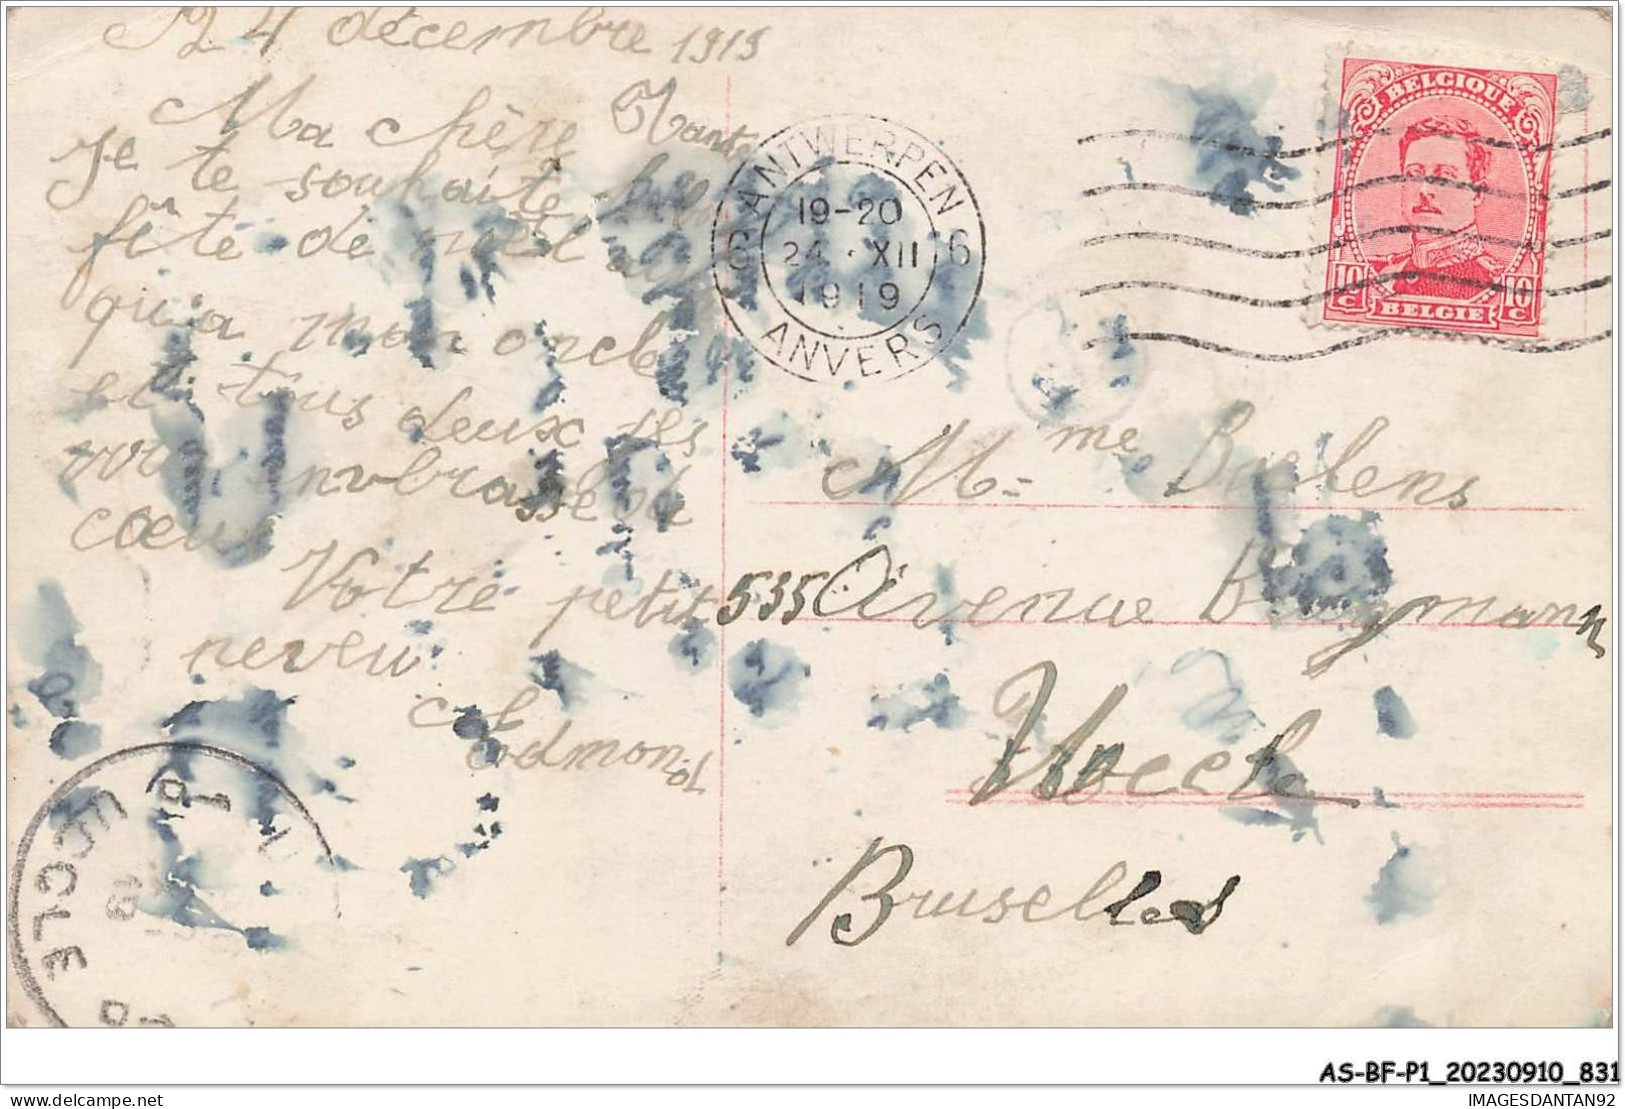 24 décembre 1919
Ma chère Tante
Je te souhaite
fête de noël
qu'a mon oncle
et tous deux
embrasse
cœur
Votre petit
neveu
Edmond
ANTWERPEN
6 6
19-20
24 · XII
1919
ANVERS
BELGIQUE
10 c 10 c
BELGIE
Mme Baelens
535 Avenue Brugmann
Uccle
Bruxelles
UCCLE
19
AS-BF-P1_20230910_831
IMAGESDANTAN92